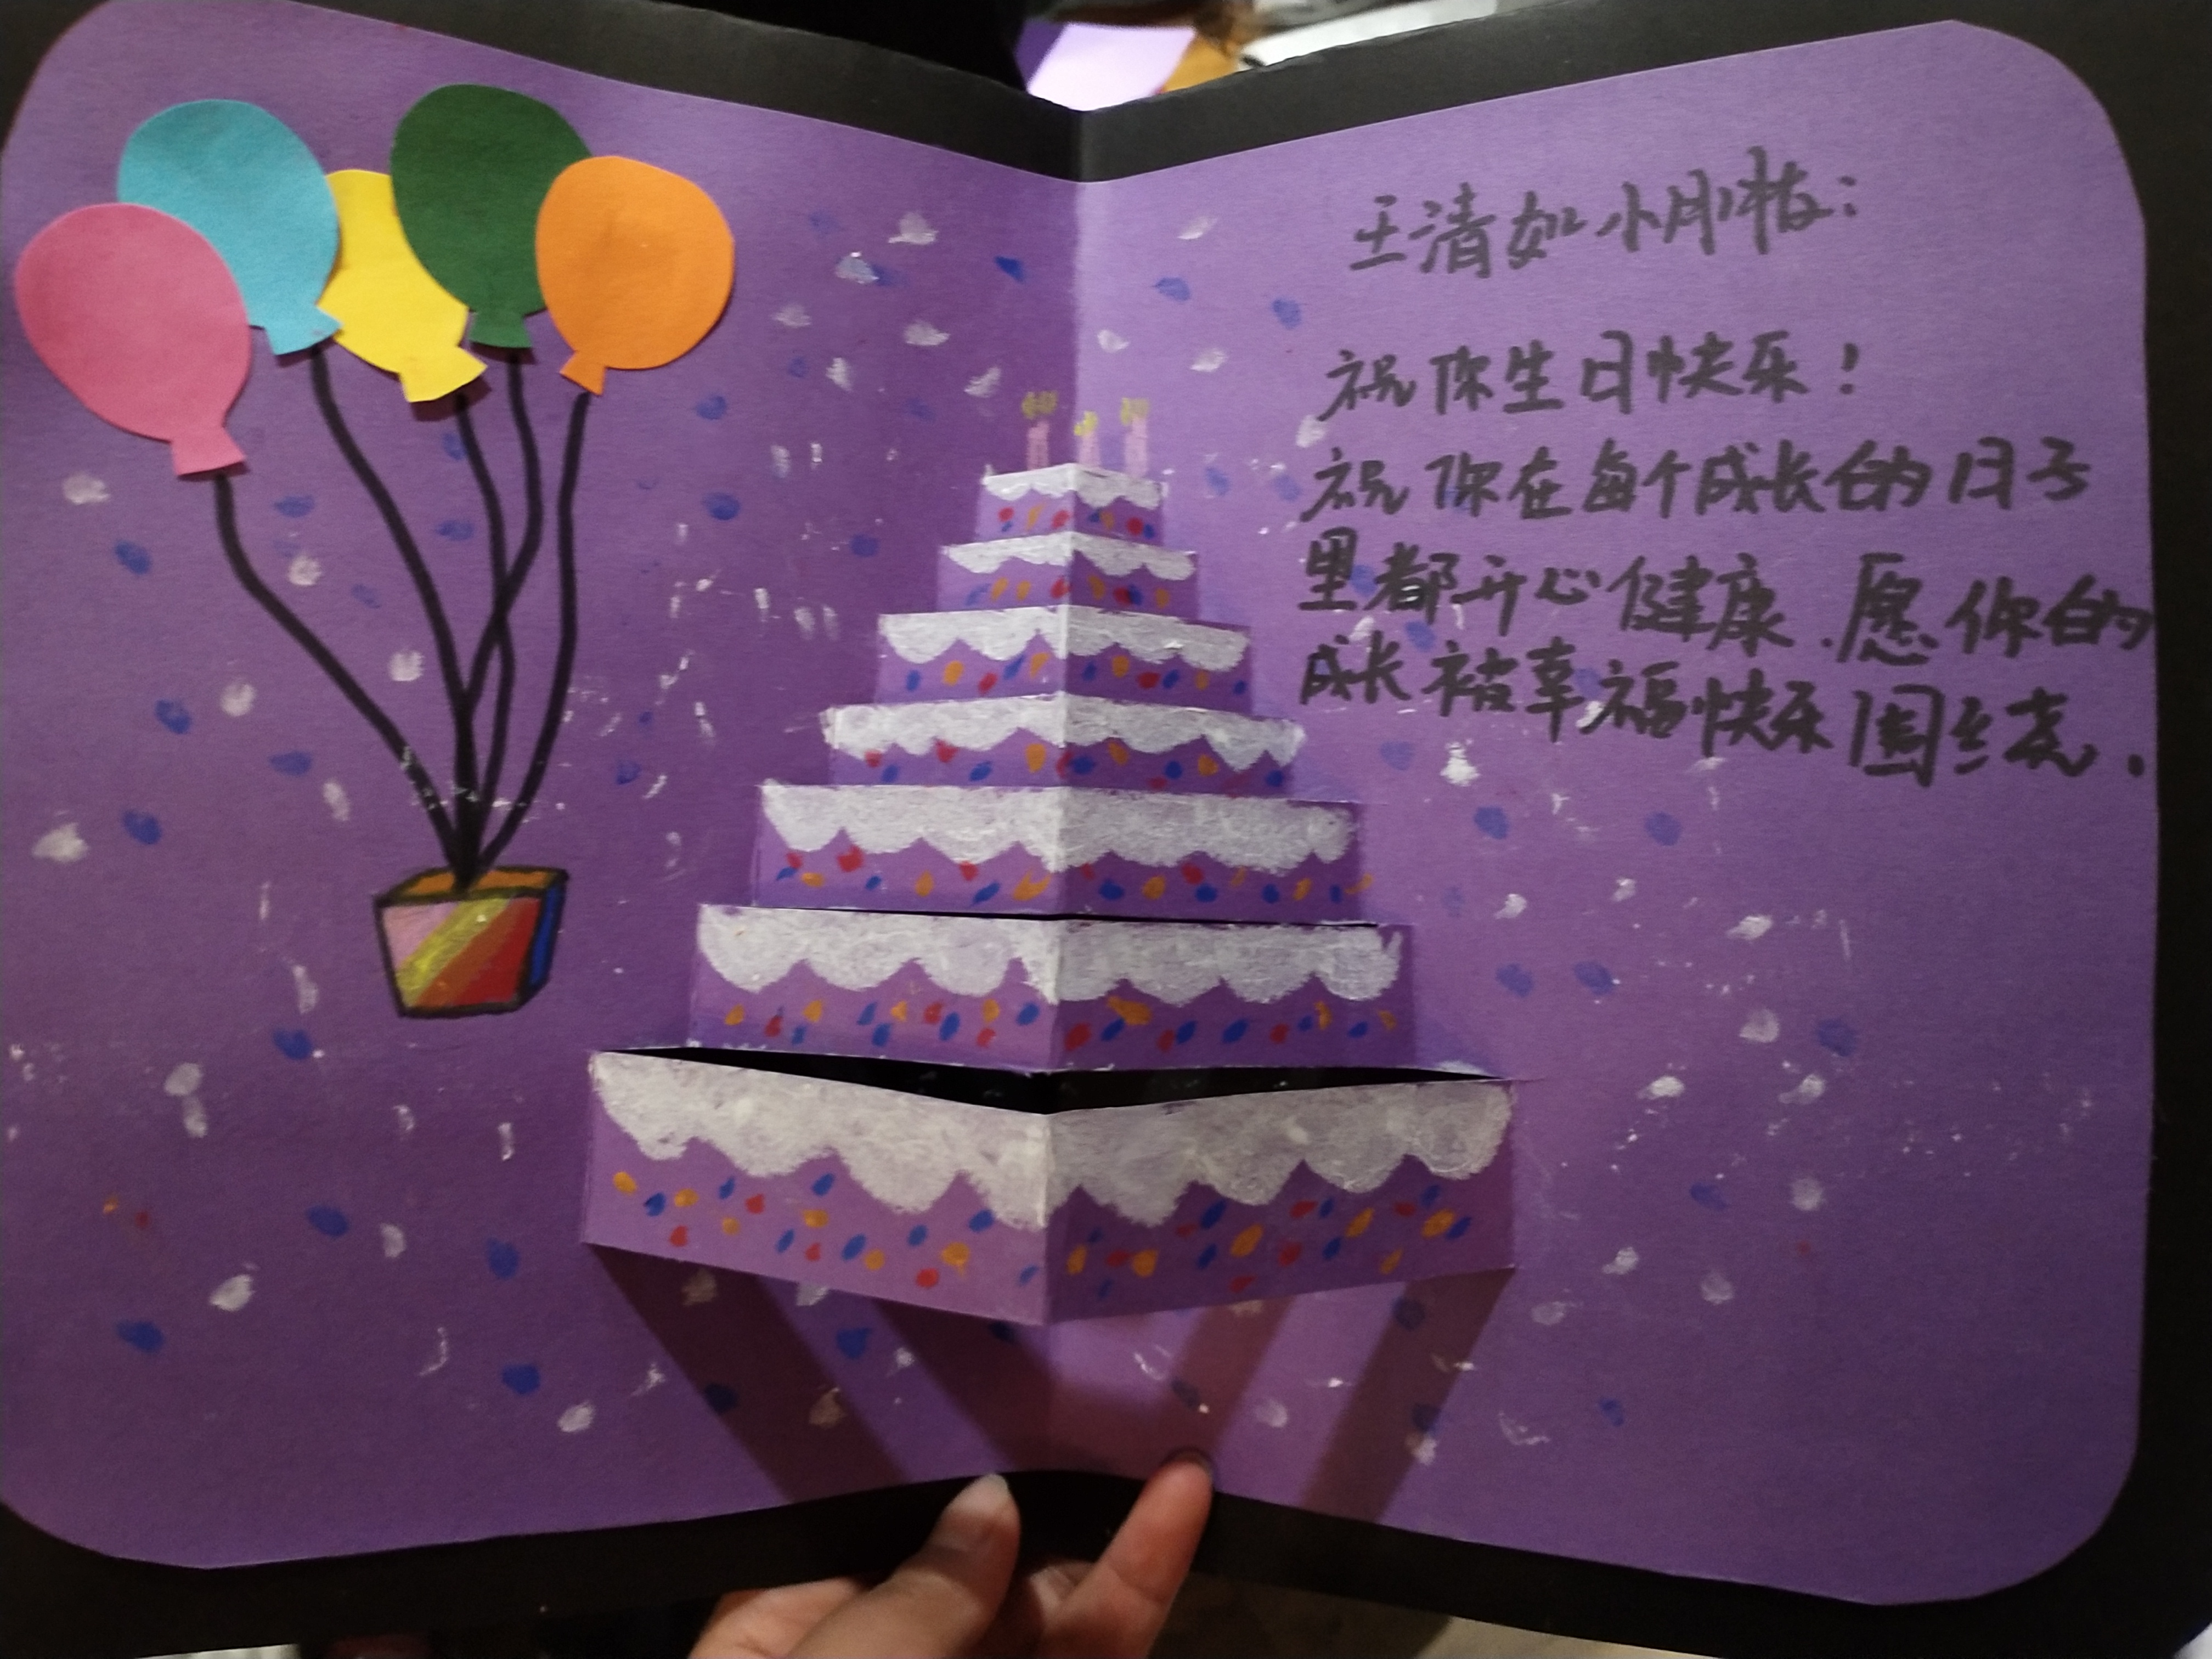 王清如小朋友:
祝你生日快乐!
祝你在每个成长的日子
里都开心健康.愿你的
成长被幸福快乐围绕.